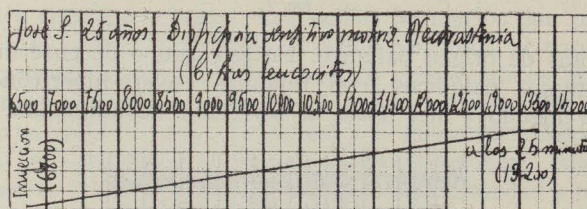 José S. 25 años. Dispepsia sensitivo motriz. Neurastenia
(Cifras leucocitos)
6500 7000 7500 8000 8500 9000 9500 10000 10500 11000 11500 12000 12500 13000 13500 14000
Inyección
(6800)
a los 25 minutos
(13-200)